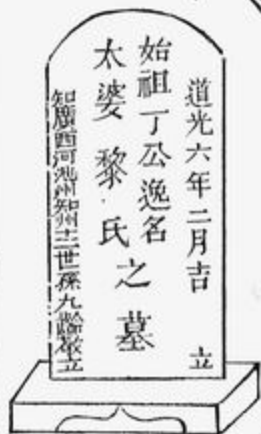 道光六年二月吉 立
始祖丁公逸名
太婆黎氏之墓
知廣西河池州知州十二世孫九齡敬立